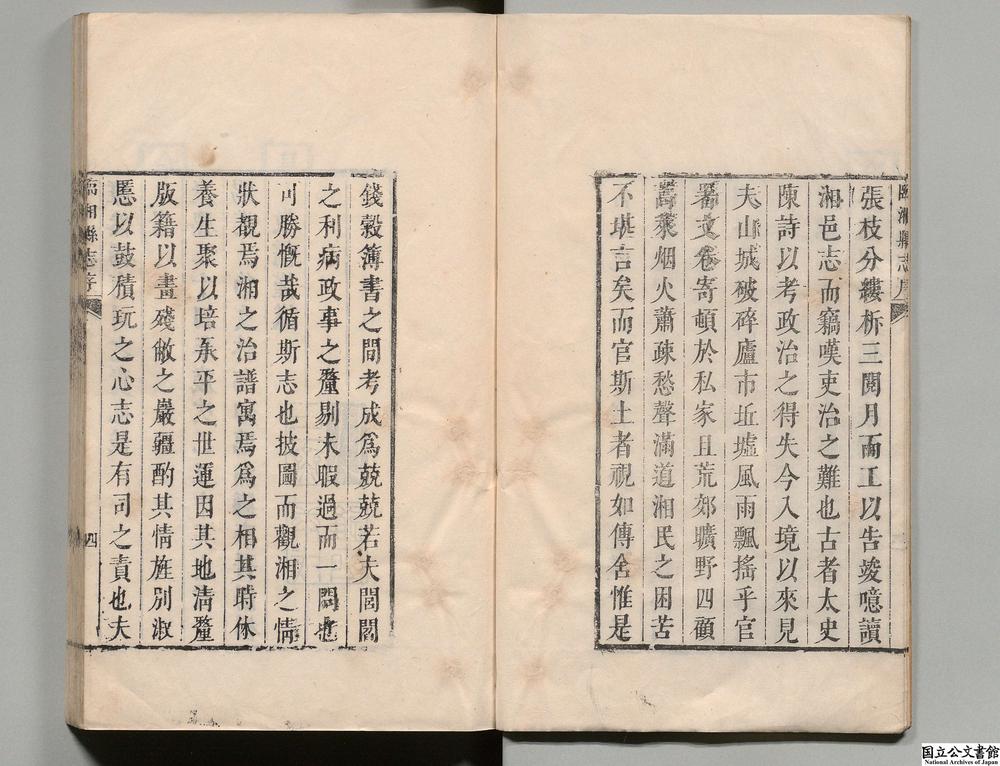 張枝分縷析三閱月而工以告竣噫讀
湘邑志而竊嘆吏治之難也古者太史
陳詩以考政治之得失今入境以來見
夫山城破碎廬市坵墟風雨飄搖乎官
署文卷寄頓於私家且荒郊曠野四顧
蒿萊烟火蕭疎愁聲滿道湘民之困苦
不堪言矣而官斯土者視如傳舍惟是
錢穀簿書之間考成爲兢兢若夫閭閻
之利病政事之釐剔未暇過而一問也
可勝慨哉循斯志也披圖而觀湘之情
狀覩焉湘之治譜寓焉爲之相其時休
養生聚以培承平之世運因其地淸釐
版籍以畫殘敝之嚴疆酌其情旌別淑
慝以鼓積玩之心志是有司之責也夫
臨湘縣志序
臨湘縣志序
四
国立公文書館
National Archives of Japan